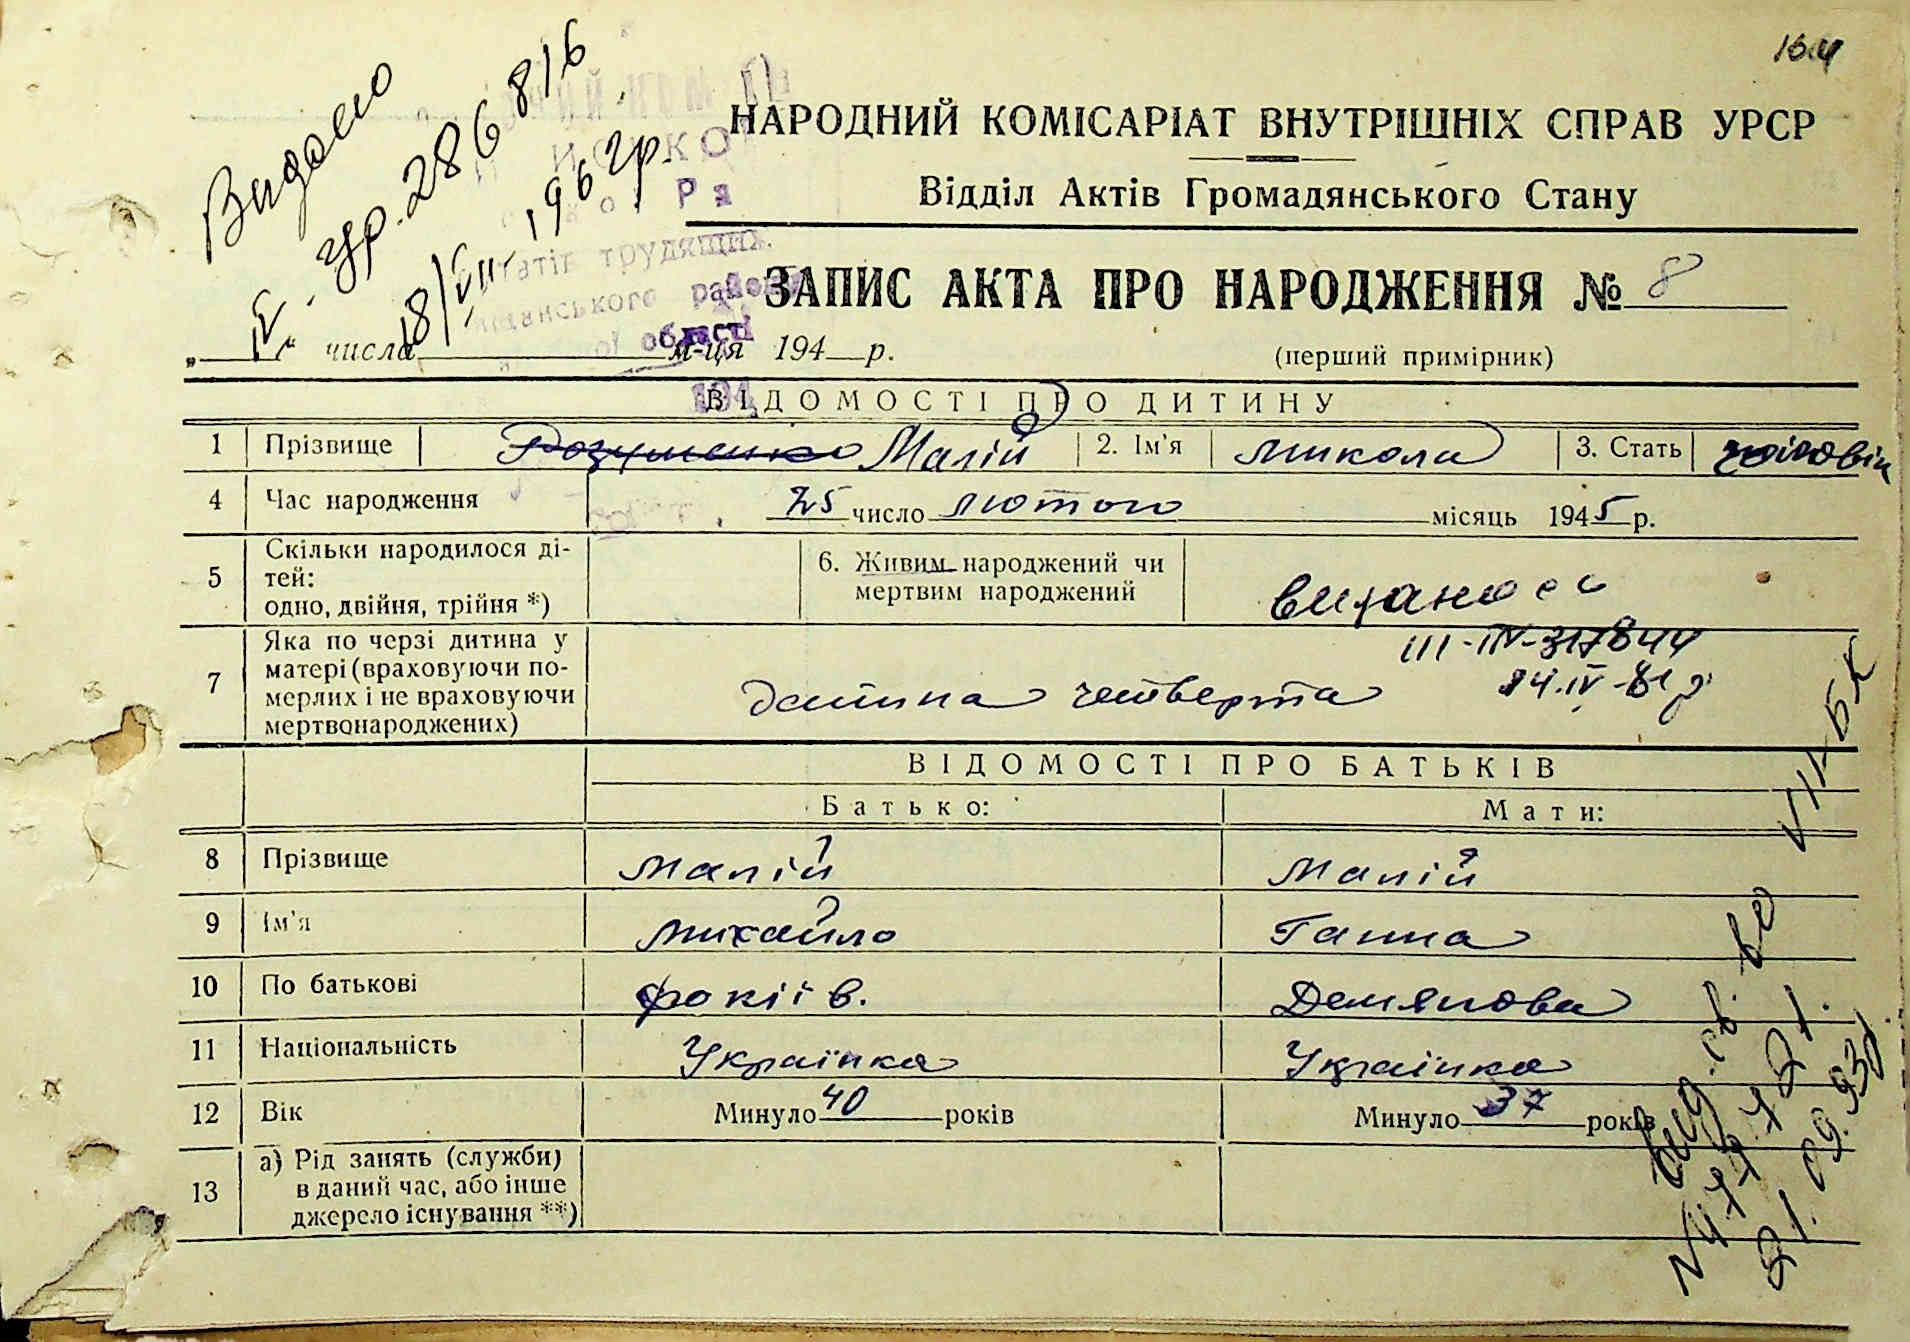 164
Видано
IV - ур. 286816
18/VIII 1961р.
НАРОДНИЙ КОМІСАРІАТ ВНУТРІШНІХ СПРАВ УРСР
Відділ Актів Громадянського Стану
ЗАПИС АКТА ПРО НАРОДЖЕННЯ № 8
трудящих
району
області
194
„ “ числа м-ця 194 р. (перший примірник)
ВІДОМОСТІ ПРО ДИТИНУ
1 Прізвище Розуменко Малій 2. Ім'я Микола 3. Стать чоловік
4 Час народження 25 число лютого місяць 1945 р.
5 Скільки народилося ді-
тей:
одно, двійня, трійня *)
6. Живим народжений чи
мертвим народжений
7 Яка по черзі дитина у
матері (враховуючи по-
мерлих і не враховуючи
мертвонароджених)
дитина четверта
III-IV-317844
ВІДОМОСТІ ПРО БАТЬКІВ
Батько: Мати:
8 Прізвище Малій Малій
9 Ім'я Михайло Ганна
10 По батькові Фокіїв. Демянова
11 Національність Українка Українка
12 Вік Минуло 40 років Минуло 37 років
13 а) Рід занять (служби)
в даний час, або інше
джерело існування **)